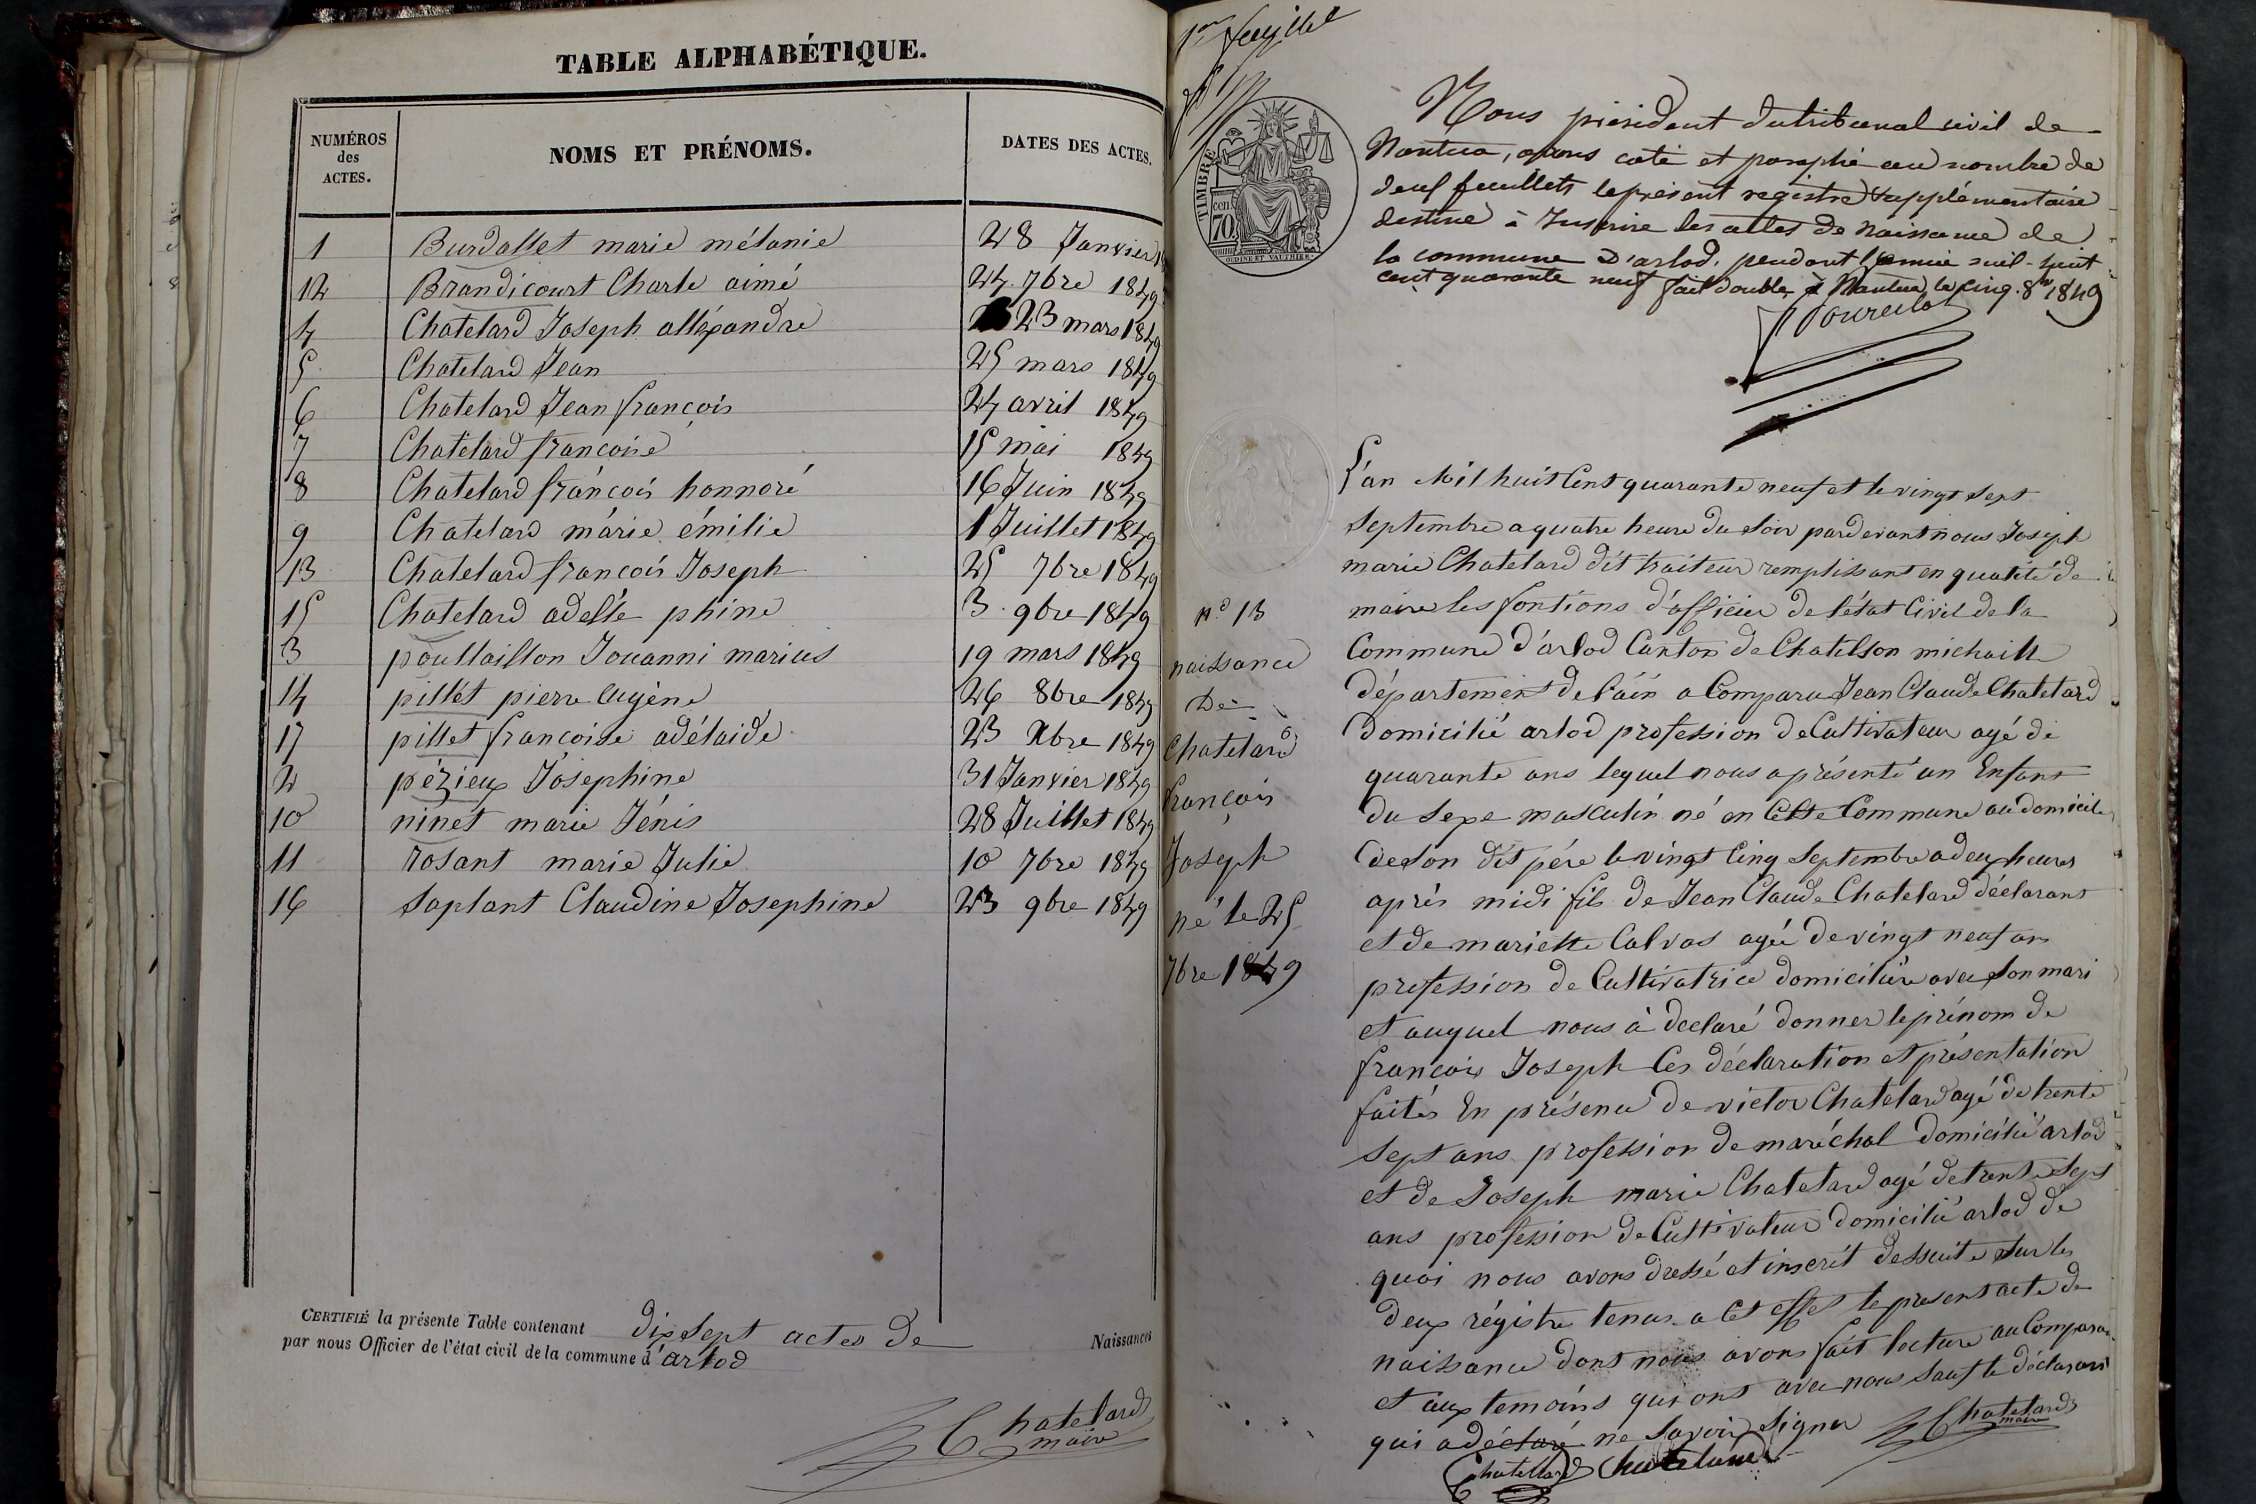 TABLE ALPHABÉTIQUE.
NUMÉROS des ACTES. NOMS ET PRÉNOMS. DATES DES ACTES.
1 Burdallet marie mélanie 28 Janvier
12 Brandicourt Charle aimé 24 7bre 1849
4 Chatelard Joseph alléxandre 23 mars 1849
5 Chatelard Jean 25 mars 1849
6 Chatelard Jean françois 24 avril 1849
7 Chatelard françoise 15 mai 1849
8 Chatelard françois honnoré 16 Juin 1849
9 Chatelard marie émilie 1 Juillet 1849
13 Chatelard françois Joseph 25 7bre 1849
15 Chatelard adelle phine 3 9bre 1849
3 poullaillon Jouanni marius 19 mars 1849
14 pillet pierre Eugène 26 8bre 1849
17 pillet françoise adélaide 23 Xbre 1849
2 pézieux Josephine 31 Janvier 1849
10 ninet marie Jénis 28 Juillet 1849
11 rosant marie Julie 10 7bre 1849
16 Saplant Claudine Josephine 23 9bre 1849
CERTIFIÉ la présente Table contenant dix sept actes de Naissances
par nous Officier de l'état civil de la commune d'arlod
Chatelard
maire
1er feuillet
TIMBRE
cen
70
OUDINE ET VAUTHIER
Nous président du tribunal civil de
Nantua, avons coté et paraphé au nombre de
deux feuillets le présent registre supplémentaire
destiné à Inscrire les actes de Naissance de
la commune D'arlod, pendant l'année mil-huit
cent quarante neuf fait double à Nantua le cinq 8bre 1849
n° 13
naissance
De
Chatelard
françois
Joseph
né le 25
7bre 1849
L'an Mil huit Cent quarante neuf et le vingt sept
Septembre a quatre heure du Soir pardevant nous Joseph
marie Chatelard dit traiteur remplissant en qualité de
maire les fontions d'officier de l'état Civil de la
Commune d'arlod Canton de Chatillon michaille
département de l'ain a Comparu Jean Claude Chatelard
domicilié arlod profession de Cultivateur agé de
quarante ans lequel nous a présenté un Enfant
du Sexe masculin né en Cette Commune au domicile
de Son dit pére le vingt Cinq Septembre a deux heures
aprés midi fils de Jean Claude Chatelard déclarant
et de mariette Calvas agée de vingt neuf ans
profession de Cultivatrice domiciliée avec Son mari
et auquel nous à declaré donner le prénom de
françois Joseph Ces déclaration et présentation
faités En présence de victor Chatelard agé de trente
Sept ans profession de maréchal domicilié arlod
et de Joseph marie Chatelard agé de trente Sept
ans profession de Cultivateur domicilié arlod de
quoi nous avons dressé et inscrit dessuite Sur les
deux régistre tenus a Cet effet le present acte de
naissance dont nous avons fait lecture au Comparant
et aux temoins qui ont avec nous Sauf le déclarant
qui a déclaré ne Savoir Signer
Chatelard
maire
Chatellard Chatelard